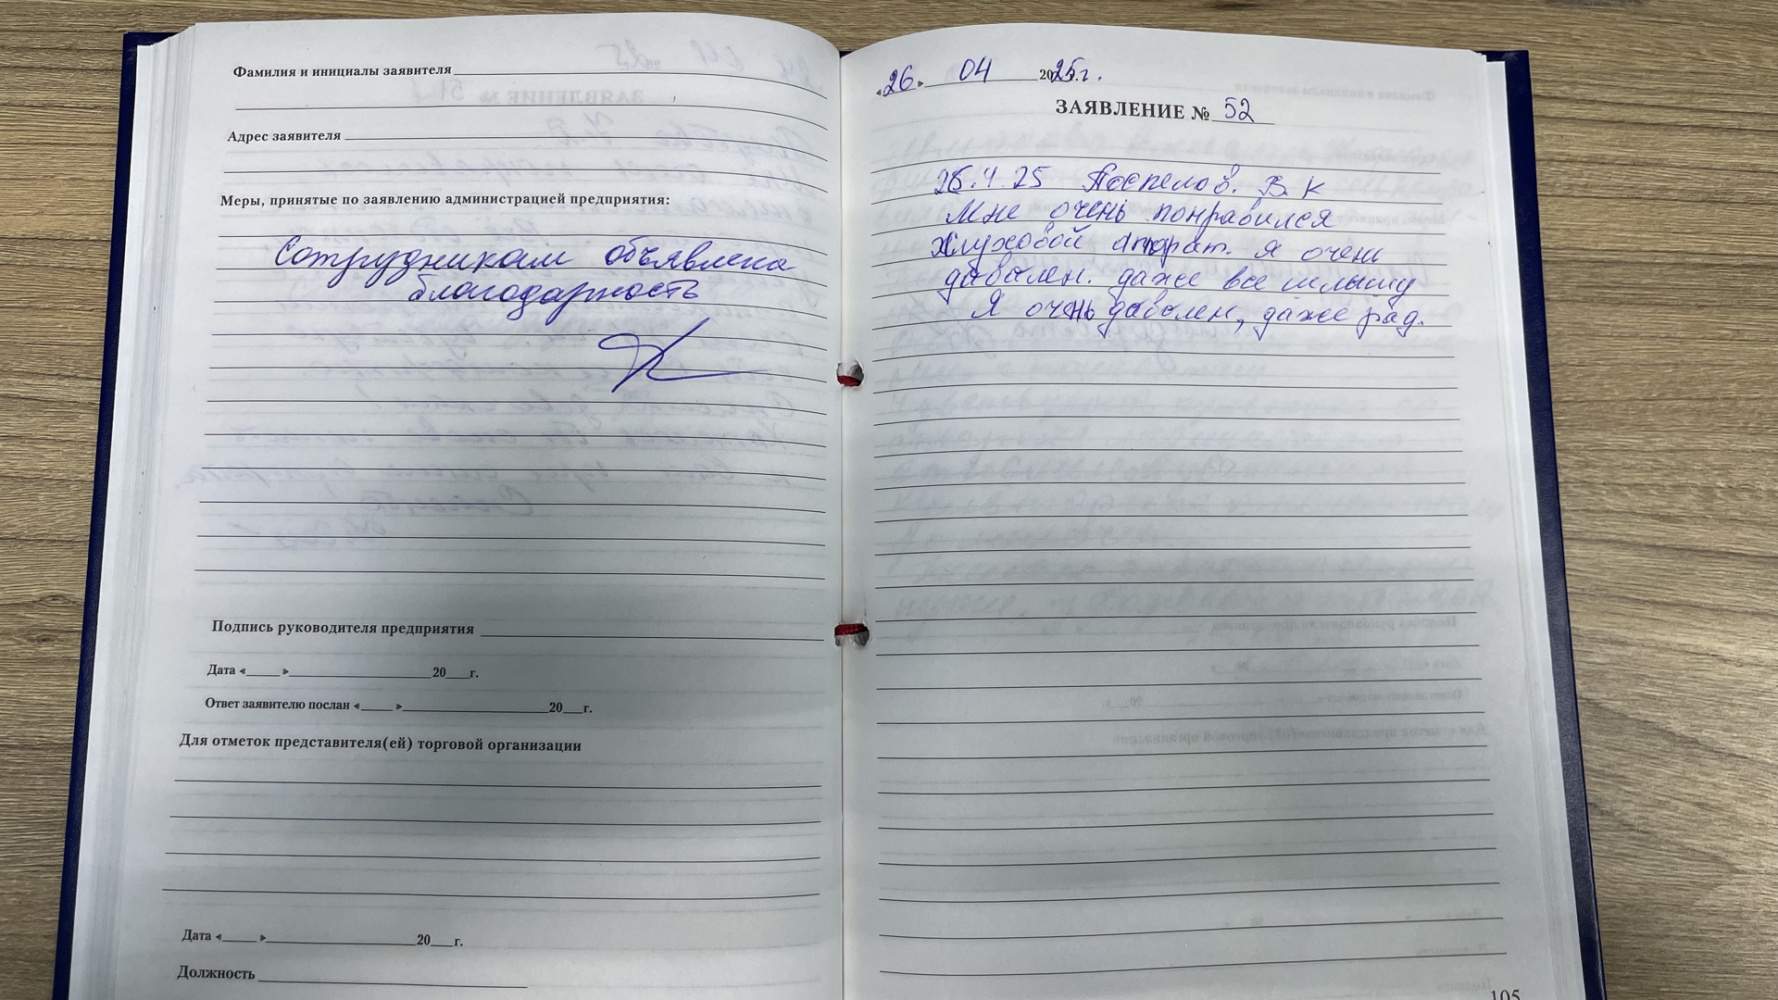 Фамилия и инициалы заявителя
Адрес заявителя
Меры, принятые по заявлению администрацией предприятия:
Сотрудникам объявлена
благодарность
Подпись руководителя предприятия
Дата «___» ___ 20___г.
Ответ заявителю послан «___» ___ 20___г.
Для отметок представителя(ей) торговой организации
Дата «___» ___ 20___г.
Должность
«26» 04 2025г.
ЗАЯВЛЕНИЕ № 52
26.4.25 Поспелов. В К
Мне очень понравился
слуховой аппрат. я очень
даволен. даже все шлышу
Я очень даволен, даже рад.
105